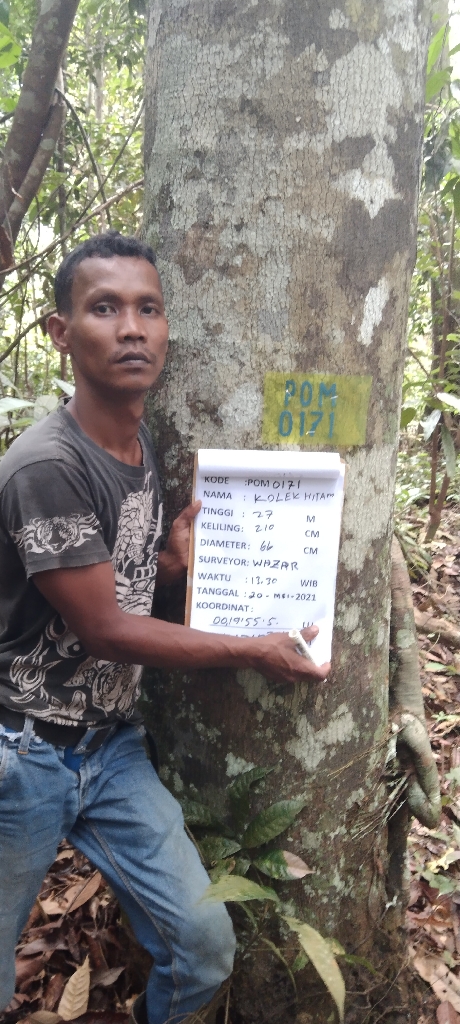 POM
0171
KODE : POM 0171
NAMA : KOLEK HITAM
TINGGI : 27 M
KELILING : 210 CM
DIAMETER : 66 CM
SURVEYOR : WAZAR
WAKTU : 13.30 WIB
TANGGAL : 20 - MEI - 2021
KOORDINAT :
00.19'55.5.